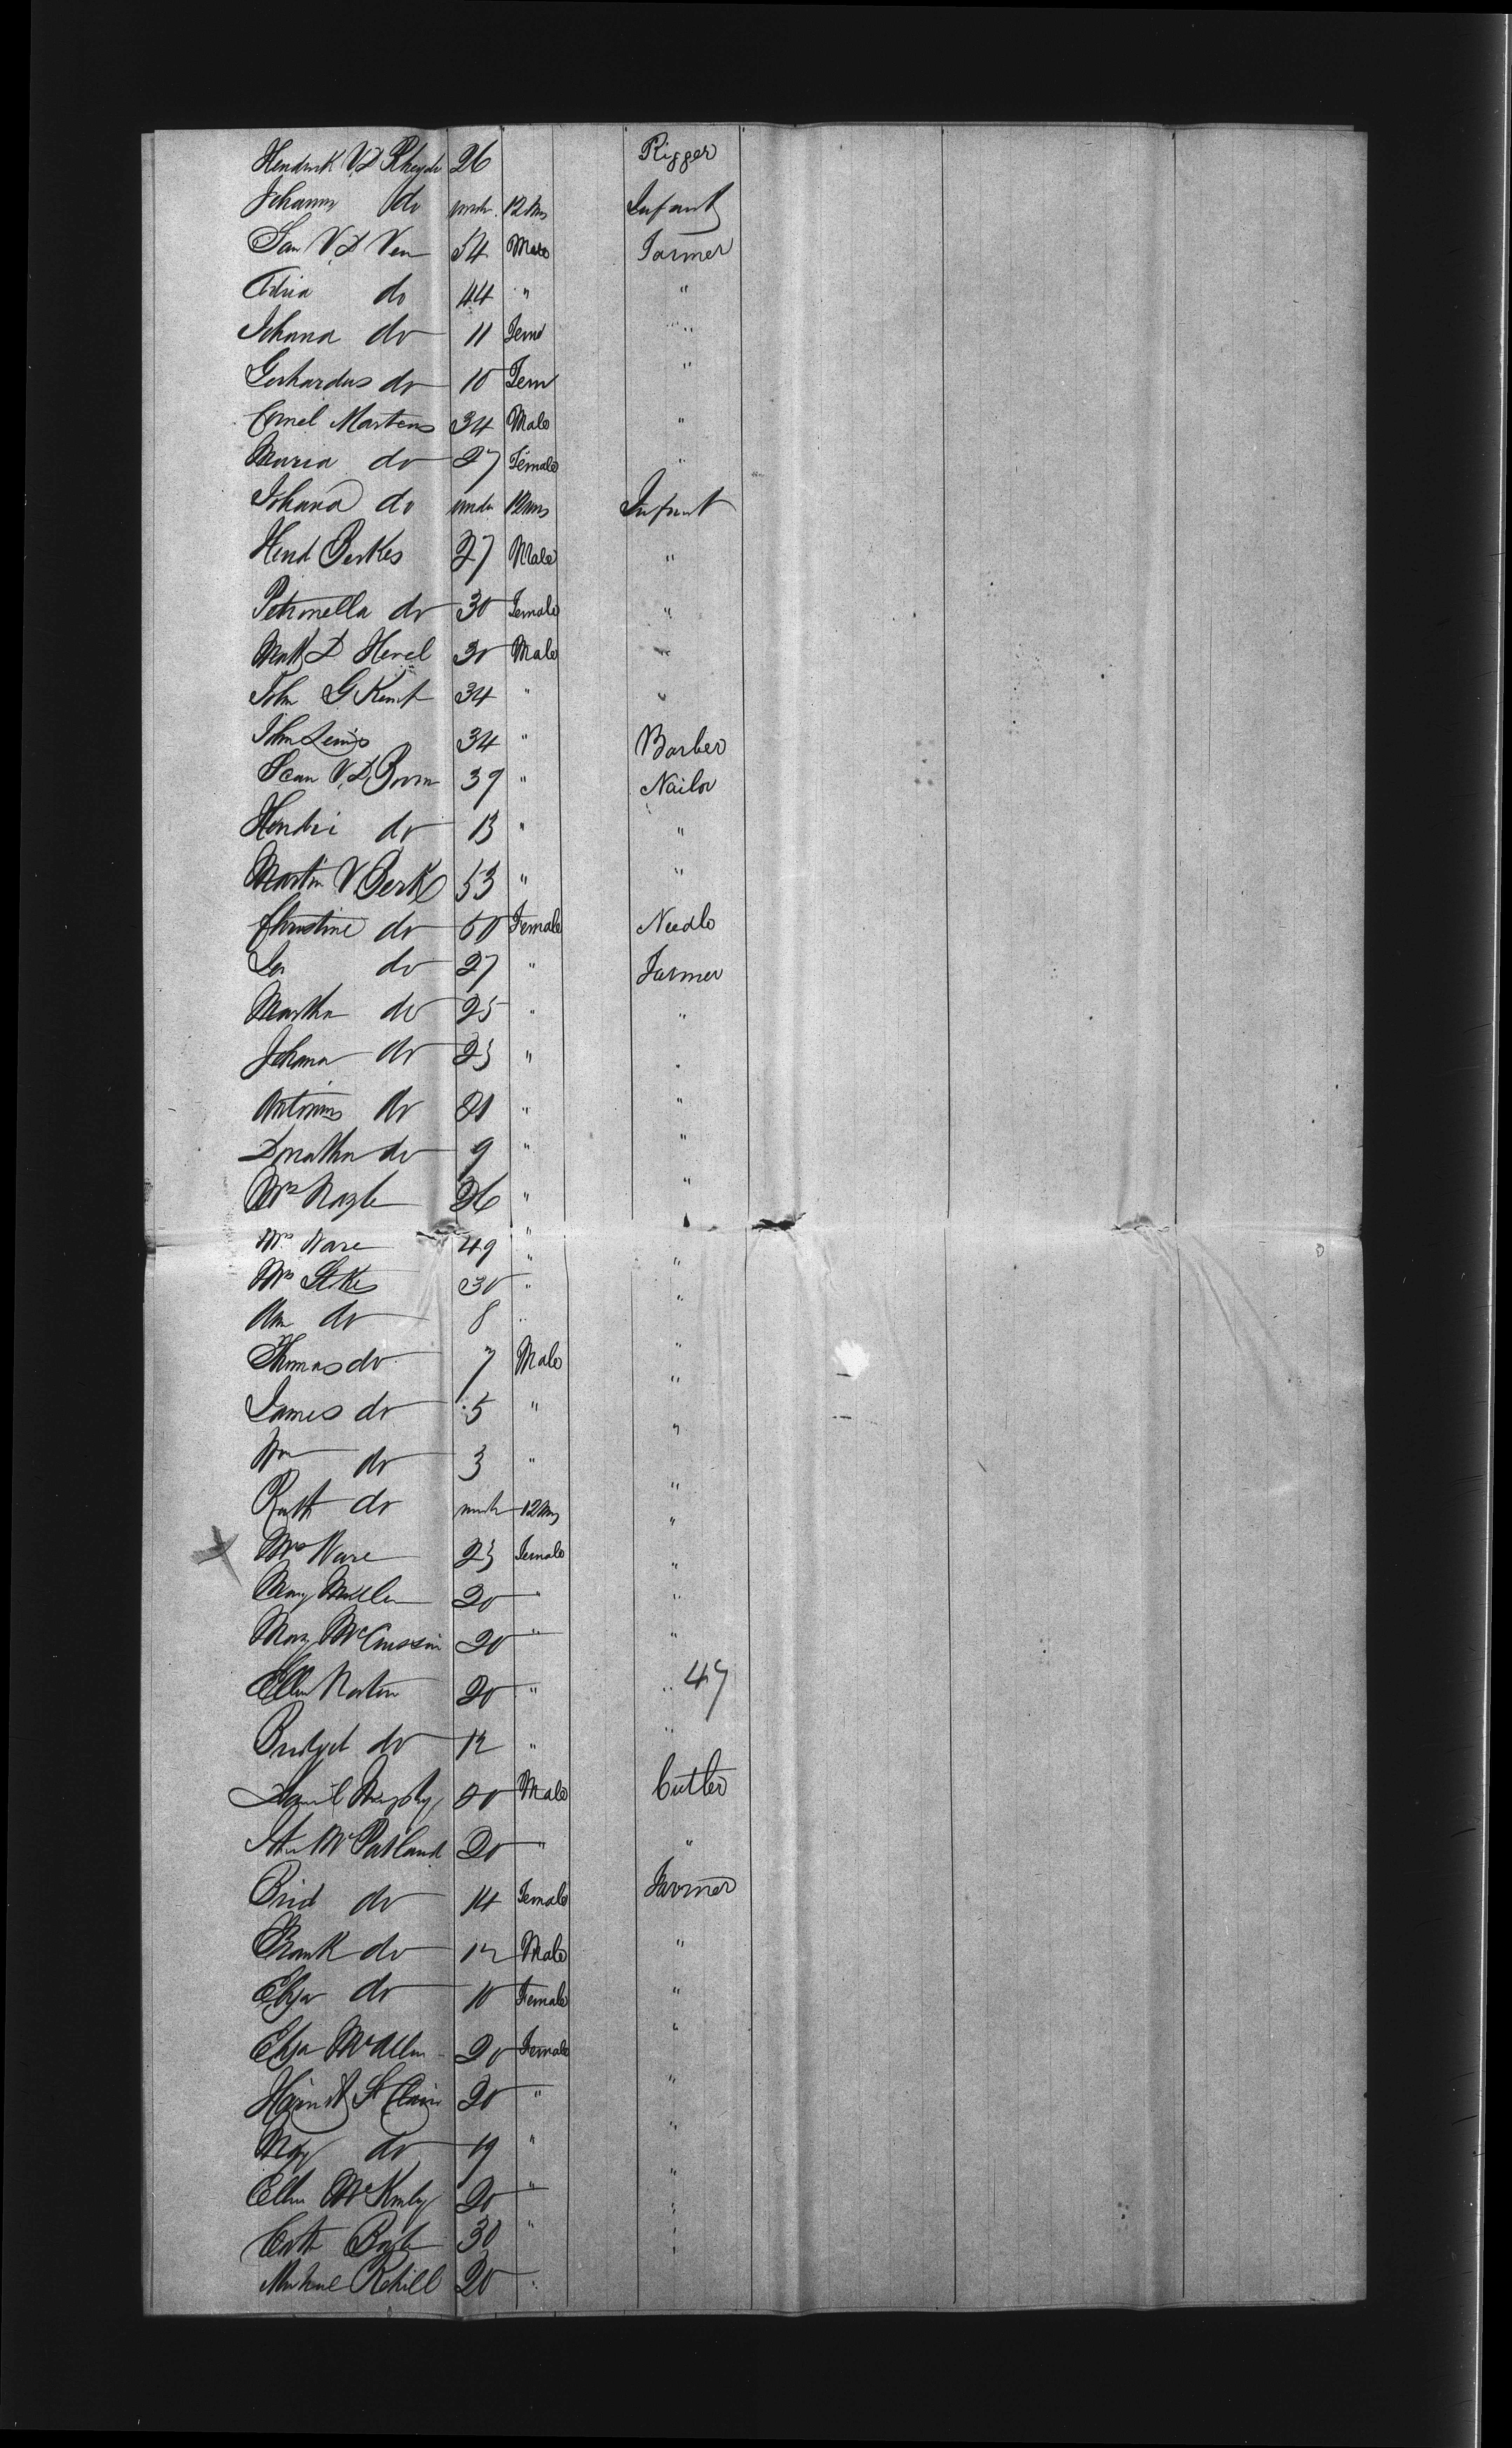 Hendrick V.D. Rheyde 26 Rigger
Johanna do under 12 Ms Infant
Jan V.D. Ven 54 Male Farmer
Adria do 44 " "
Johana do 11 Fem "
Gerhardus do 10 Fem "
Cornel Martens 34 Male "
Maria do 27 Female "
Johana do under 12 ms Infant
Hend Berkes 27 Male "
Petronella do 30 Female "
Matt D Hevel 30 Male "
John G Kemp 34 " "
John Lewis 34 " Barber
Jean V.D. Boom 39 " Nailor
Hendri do 13 " "
Martin V Berk 53 " "
Christine do 50 Female Needle
do 27 " Farmer
Martha do 25 " "
Johana do 23 " "
Antonius do 21 " "
Doratha do 9 " "
Mrs Nagle 26 " "
Mrs Ware 49 " "
Mrs Stokes 30 " "
Ann do 8 " "
Thomas do 7 Male "
James do 5 " "
Wm do 3 " "
Ruth do under 12 ms "
X Mrs Ware 23 Female "
Mary Mullen 20 " "
Mary McCrossin 20 " "
Ellen Norton 20 " " 47
Bridget do 12 " "
Daniel Murphy 20 Male Cutler
McParland 20 " "
Brid do 14 Female Farmer
Frank do 12 Male "
Eliza do 10 Female "
Eliza McAllen 20 Female "
Harriet St Clair 20 " "
Mary do 19 " "
Ellen McKinley 20 " "
Cath Boyle 30 " "
Michael Rehill 20 "